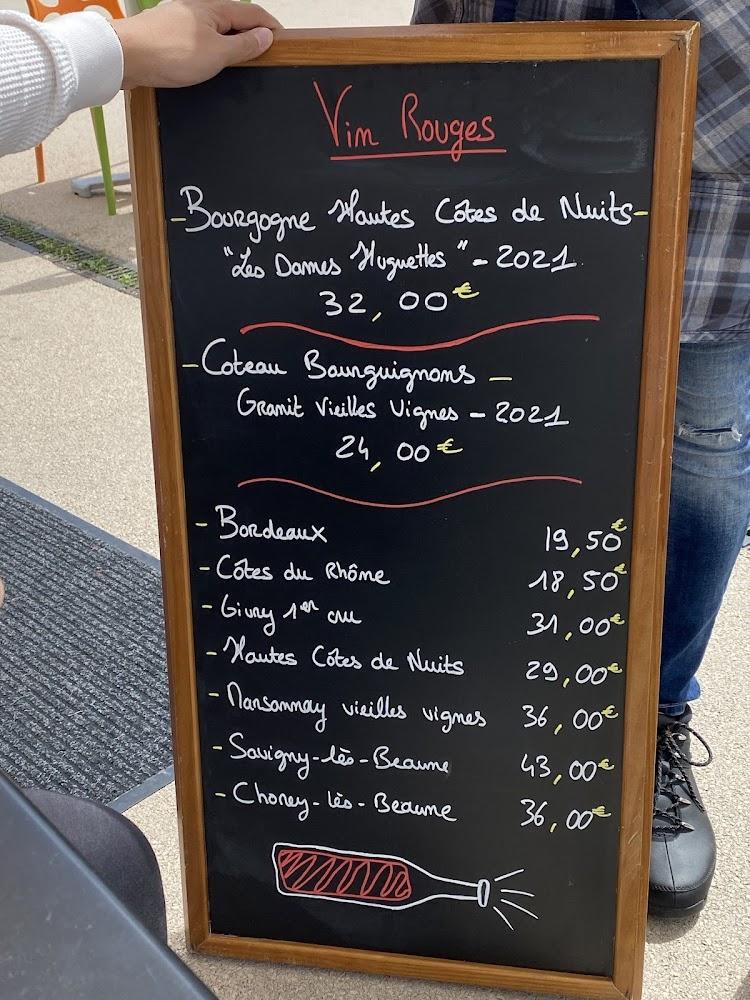 Vin Rouges
- Bourgogne Hautes Côtes de Nuits -
"Les Dames Huguettes" - 2021
32,00€
- Coteau Bourguignons -
Granit Vieilles Vignes - 2021
24,00€
- Bordeaux 19,50€
- Côtes du Rhône 18,50€
- Givry 1er cru 31,00€
- Hautes Côtes de Nuits 29,00€
- Marsannay vieilles vignes 36,00€
- Savigny-lès-Beaune 43,00€
- Chorey-lès-Beaune 36,00€